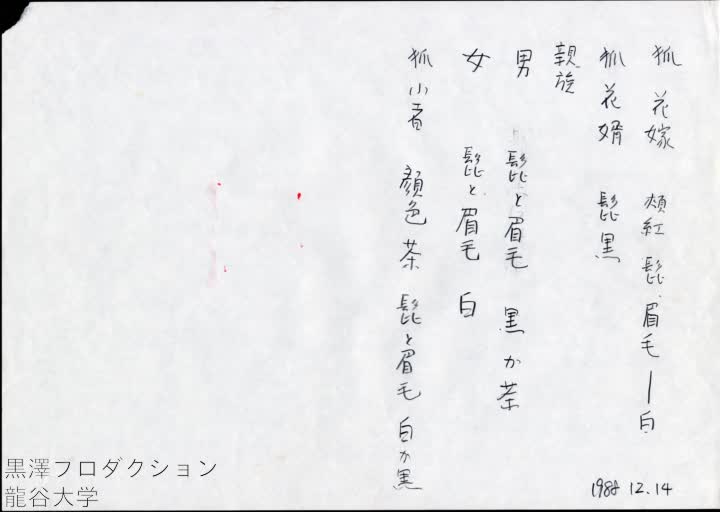 狐 花嫁 頬紅 髭、眉毛ー白
狐 花婿 髭黒
親族
男 髭と眉毛 黒か茶
女 髭と眉毛 白
狐 小者 顔色 茶 髭と眉毛 白か黒
1988 12.14
黒澤プロダクション
龍谷大学